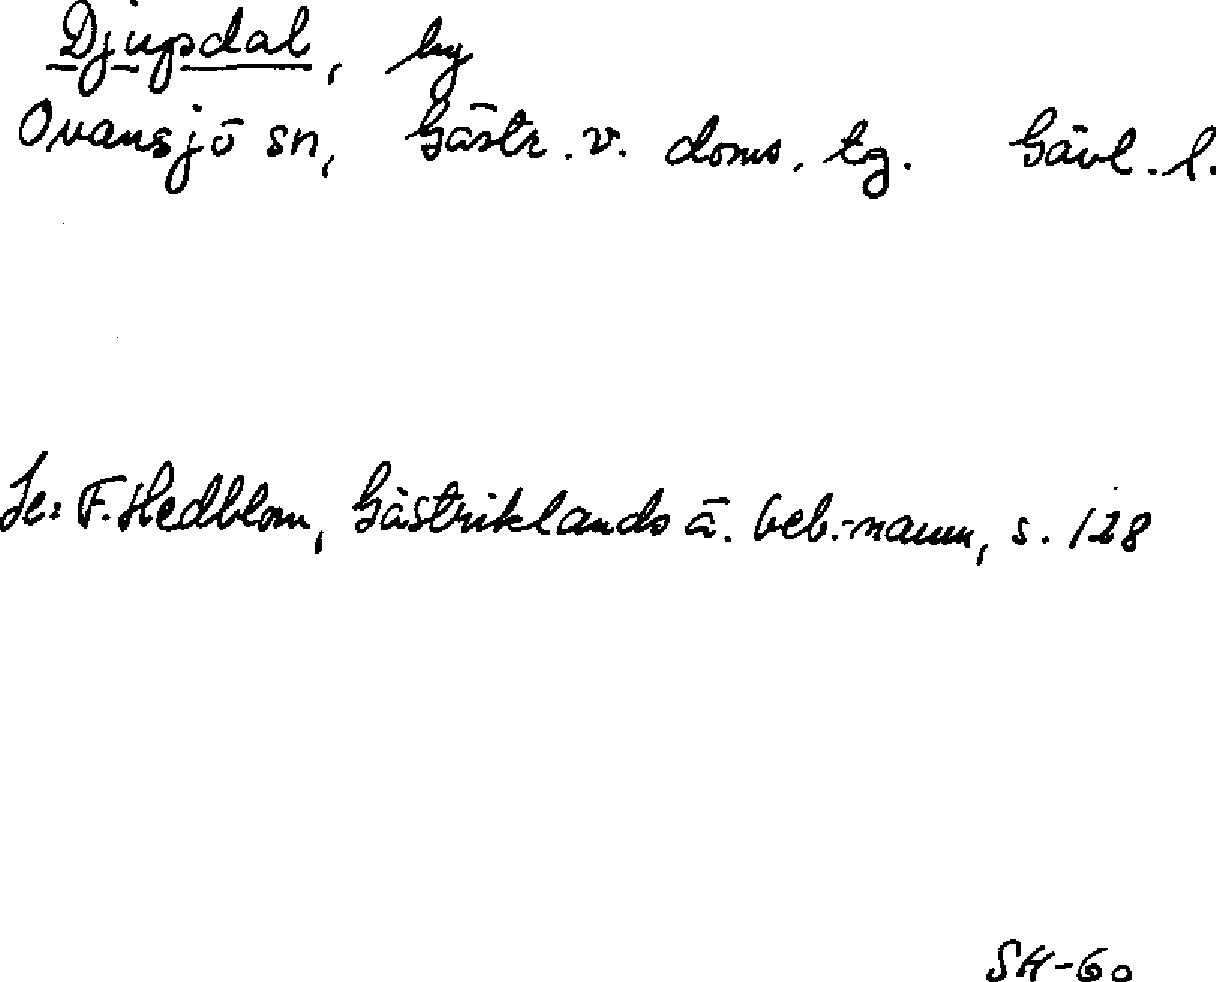 Djupdal, by
Ovansjö sn, Gästr. v. doms. tg. Gävl. l.
Se: F. Hedblom, Gästriklands ä. beb.-namn, s. 128
SH-60